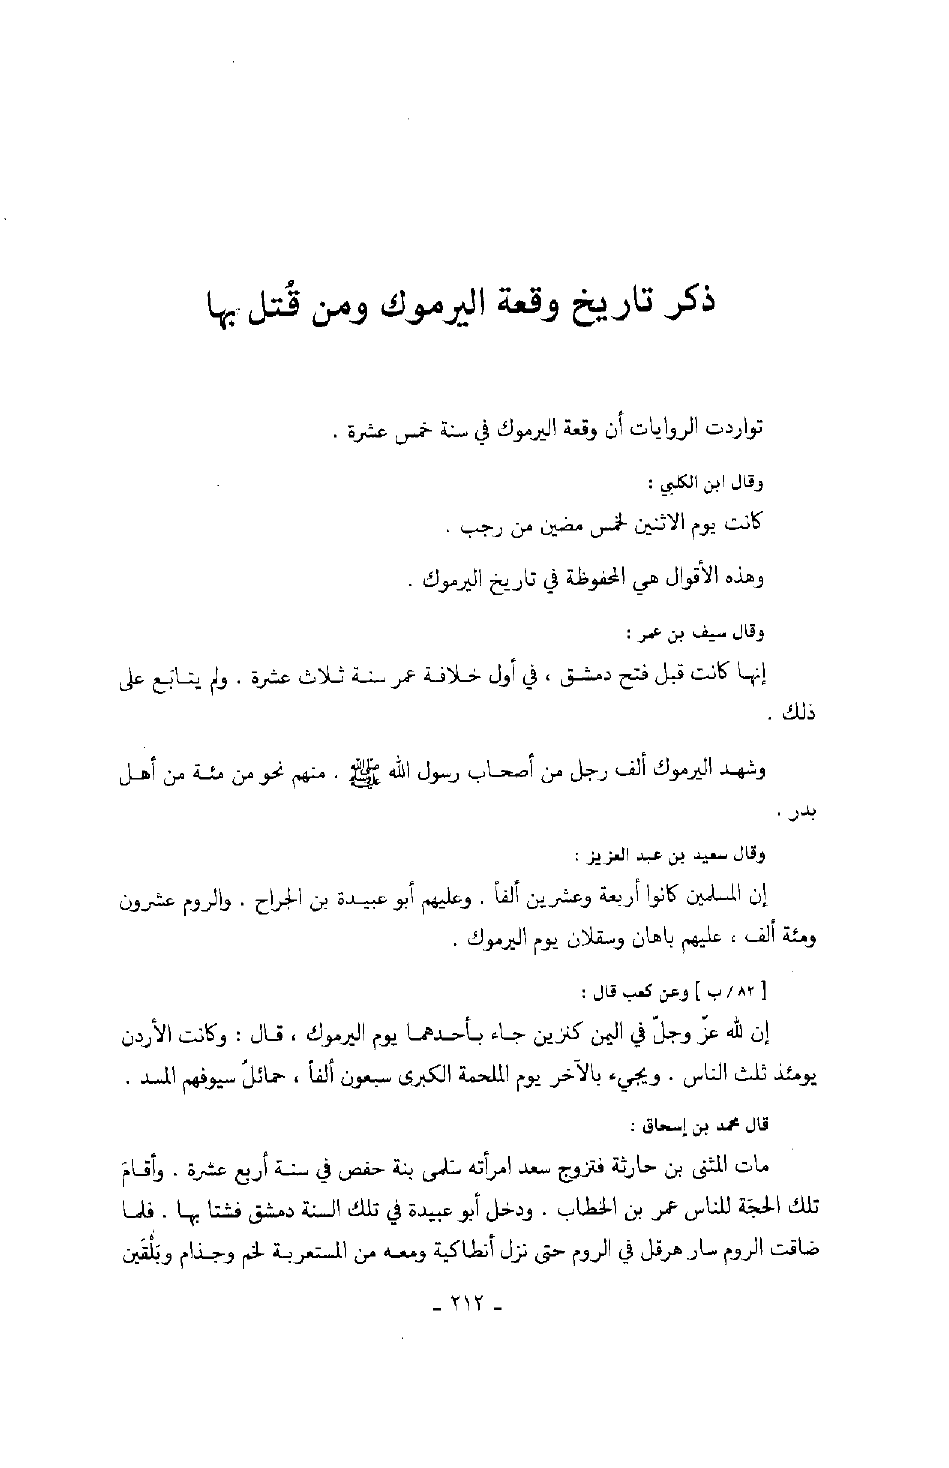 ذكر تاريخ وقعة اليرموك ومن قُتل بها
تواردت الروايات أن وقعة اليرموك في سنة خمس عشرة .
وقال ابن الكلبي :
كانت يوم الاثنين لخمس مضين من رجب .
وهذه الأقوال هي المحفوظة في تاريخ اليرموك .
وقال سيف بن عمر :
إنها كانت قبل فتح دمشق ، في أول خلافة عمر سنة ثلاث عشرة . ولم يتابَع على
ذلك .
وشهد اليرموك ألف رجل من أصحاب رسول الله ﷺ . منهم نحو من مئة من أهل
بدر .
وقال سعيد بن عبد العزيز :
إن المسلمين كانوا أربعة وعشرين ألفاً . وعليهم أبو عبيدة بن الجراح . والروم عشرون
ومئة ألف ، عليهم باهان وسقلان يوم اليرموك .
[ ٨٢/ب ] وعن كعب قال :
إن لله عزّ وجلّ في اليمن كنزين جاء بأحدهما يوم اليرموك ، قال : وكانت الأردن
يومئذ ثلث الناس . ويجيء بالآخر يوم الملحمة الكبرى سبعون ألفاً ، حمائلُ سيوفهم المسد .
قال محمد بن إسحاق :
مات المثنى بن حارثة فتزوج سعد امرأته سَلمى بنة حفص في سنة أربع عشرة . وأقامَ
تلك الحجّة للناس عمر بن الخطاب . ودخل أبو عبيدة في تلك السنة دمشق فشتا بها . فلما
ضاقت الروم سار هرقل في الروم حتى نزل أنطاكية ومعه من المستعربة لخم وجذام وبَلْقَين
- ٢١٢ -